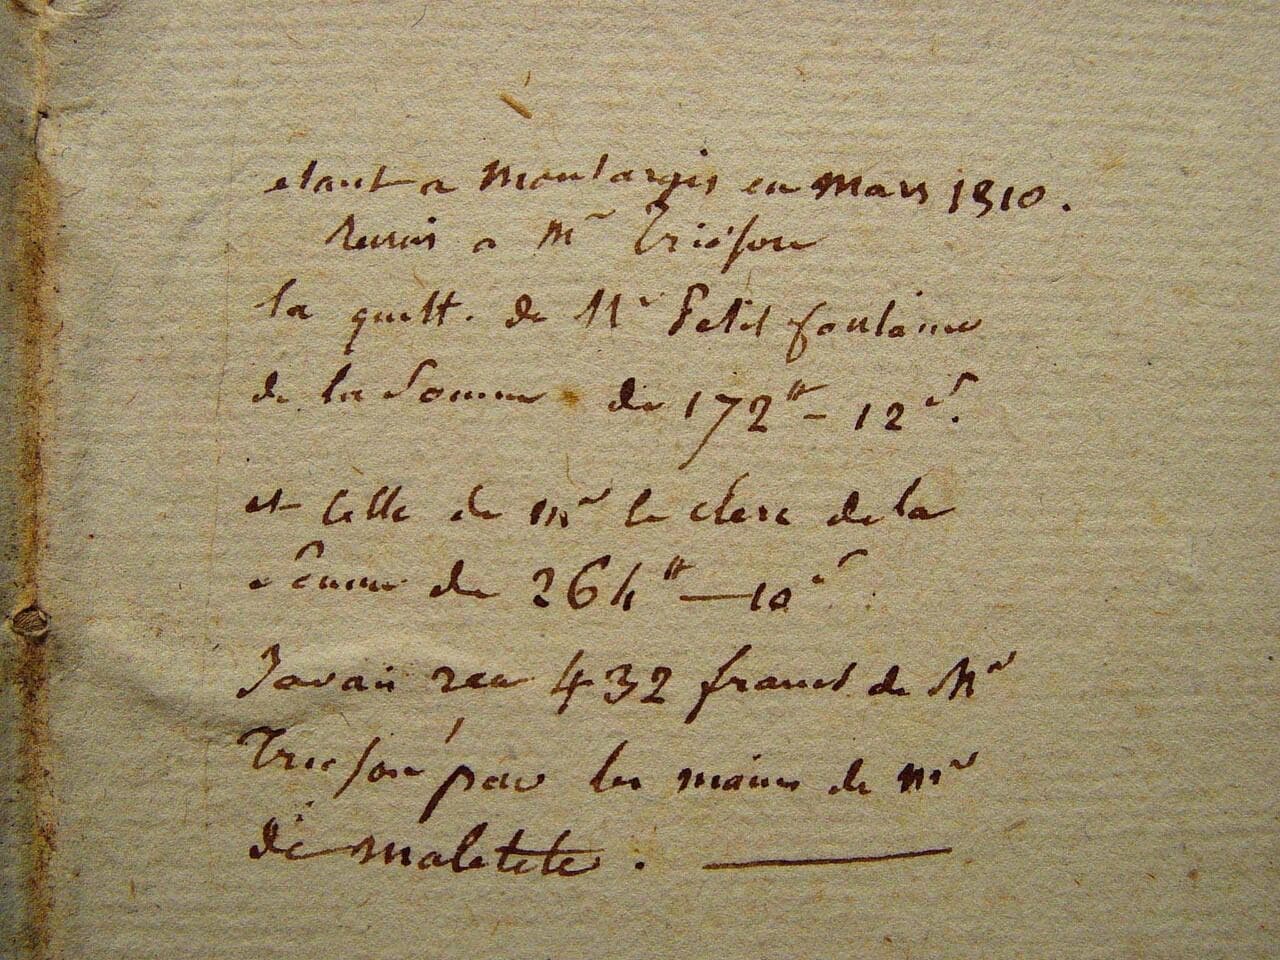 etant a Montargis en Mars 1810.
Remis a Mr Trioson
la quitt. de Mr Petit fontaine
de la Somme de 172tt - 12s.
et celle de mr le clerc de la
Somme de 264tt — 10s
Javais recu 432 francs de Mr
Trioson par les mains de mr
de maletete. —